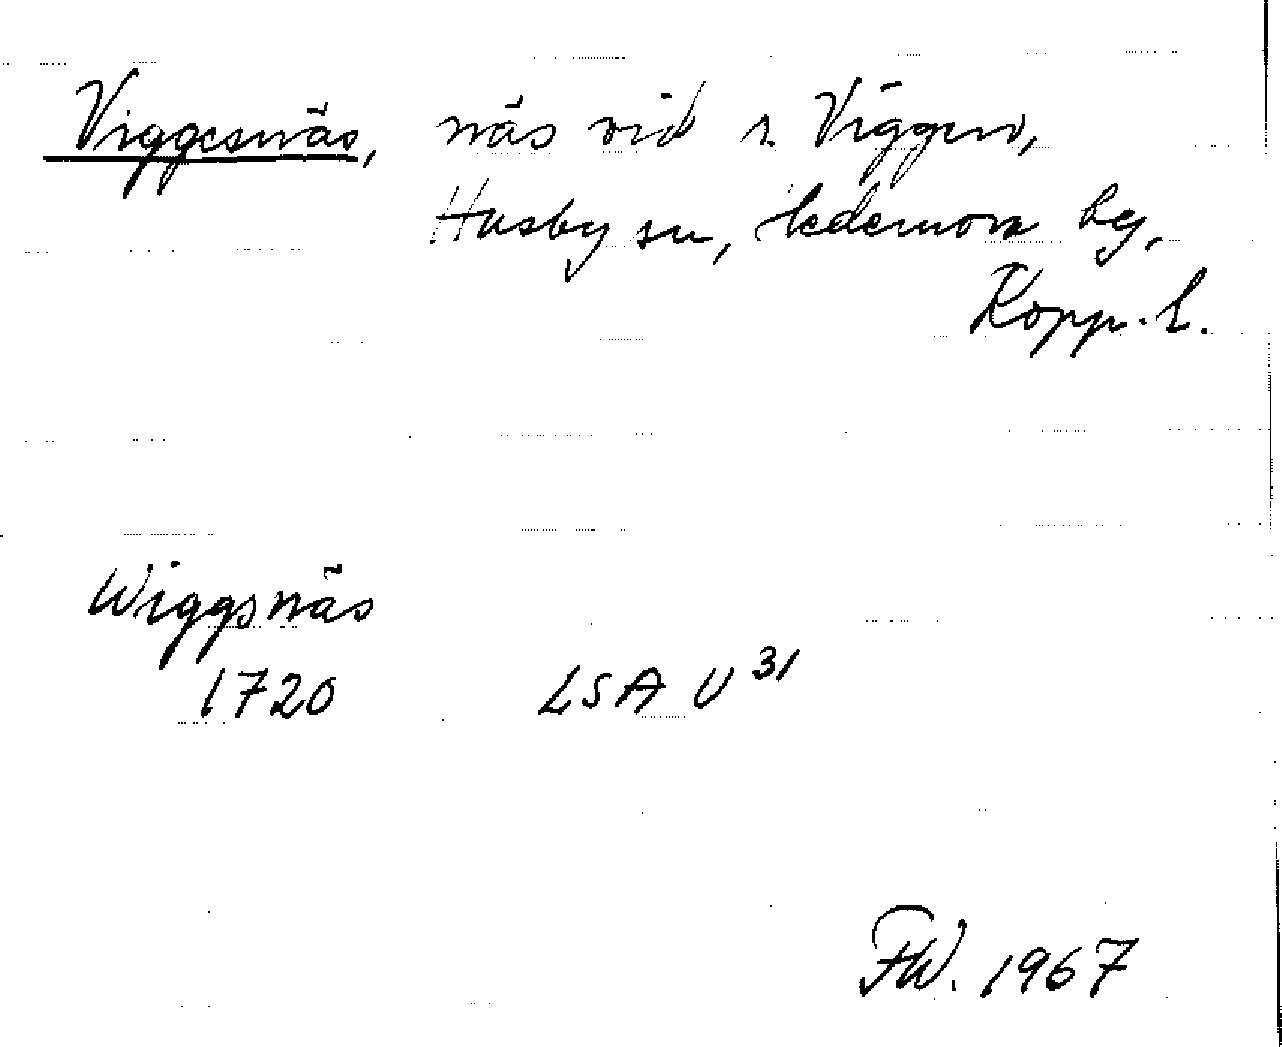 Viggesnäs, näs vid s. Viggen,
Husby sn, Kedernora by,
Kopp. l.
Wiggsnäs
1720 LSA U 31
FW. 1967